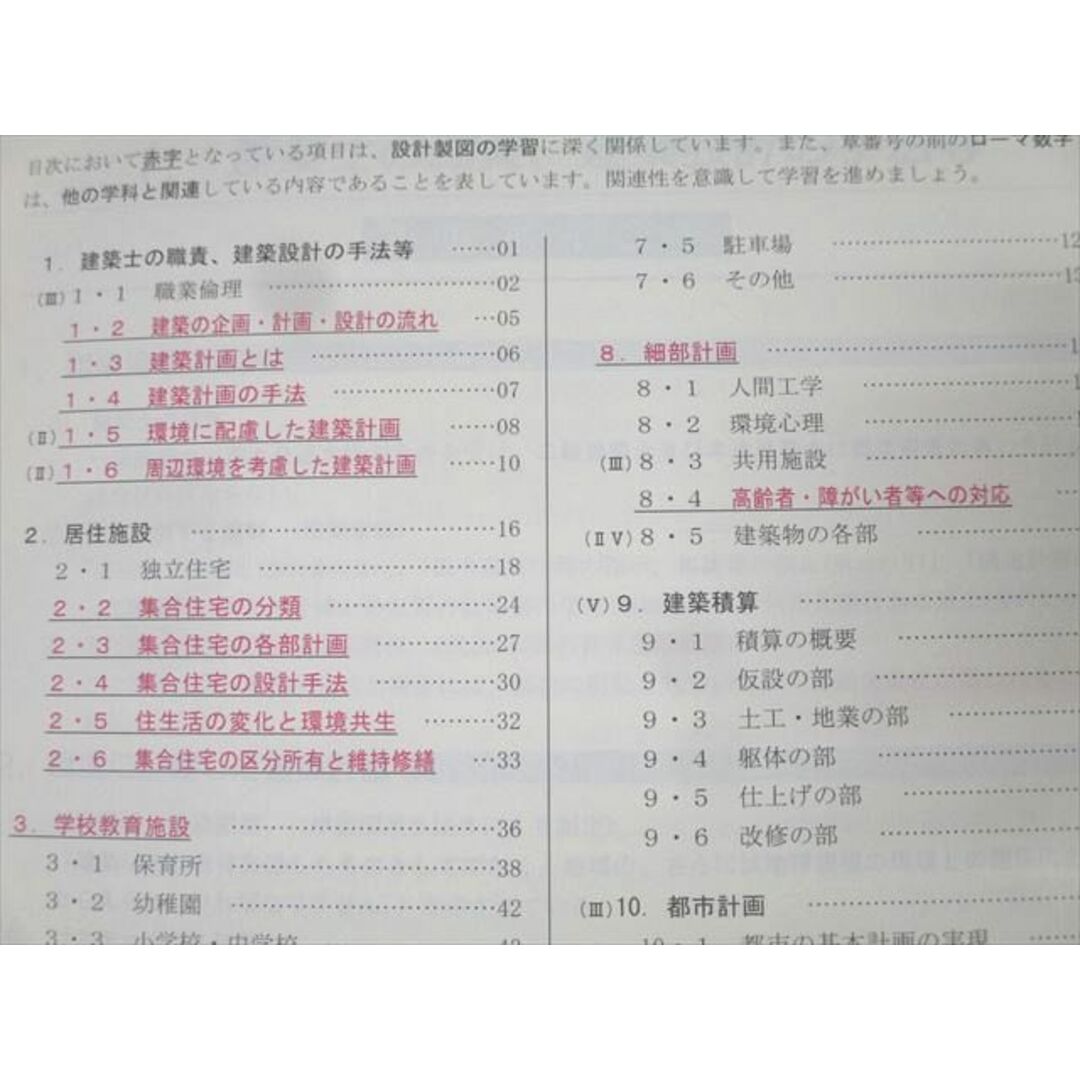 目次において赤字となっている項目は、設計製図の学習に深く関係しています。また、章番号の前のローマ数字
は、他の学科と関連している内容であることを表しています。関連性を意識して学習を進めましょう。
1. 建築士の職責、建築設計の手法等 ……01
(Ⅲ) 1・1 職業倫理 ……………………02
1・2 建築の企画・計画・設計の流れ …05
1・3 建築計画とは ………………06
1・4 建築計画の手法 ……………07
(Ⅱ) 1・5 環境に配慮した建築計画 ……08
(Ⅱ) 1・6 周辺環境を考慮した建築計画 ……10
2. 居住施設 ……………………16
2・1 独立住宅 …………………18
2・2 集合住宅の分類 ……………24
2・3 集合住宅の各部計画 …………27
2・4 集合住宅の設計手法 …………30
2・5 住生活の変化と環境共生 ………32
2・6 集合住宅の区分所有と維持修繕 …33
3. 学校教育施設 …………………36
3・1 保育所 ……………………38
3・2 幼稚園 ……………………42
3・3 小学校・中学校 ……………43
7・5 駐車場 ……………………12
7・6 その他 ……………………13
8. 細部計画 ……………………1
8・1 人間工学 …………………1
8・2 環境心理 …………………1
(Ⅲ) 8・3 共用施設 …………………
8・4 高齢者・障がい者等への対応 …
(ⅡⅤ) 8・5 建築物の各部 ……………
(Ⅴ) 9. 建築積算 ……………………
9・1 積算の概要 ………………
9・2 仮設の部 …………………
9・3 土工・地業の部 ……………
9・4 躯体の部 …………………
9・5 仕上げの部 ………………
9・6 改修の部 …………………
(Ⅲ) 10. 都市計画 ……………………
10・1 都市の基本計画の実現 ……